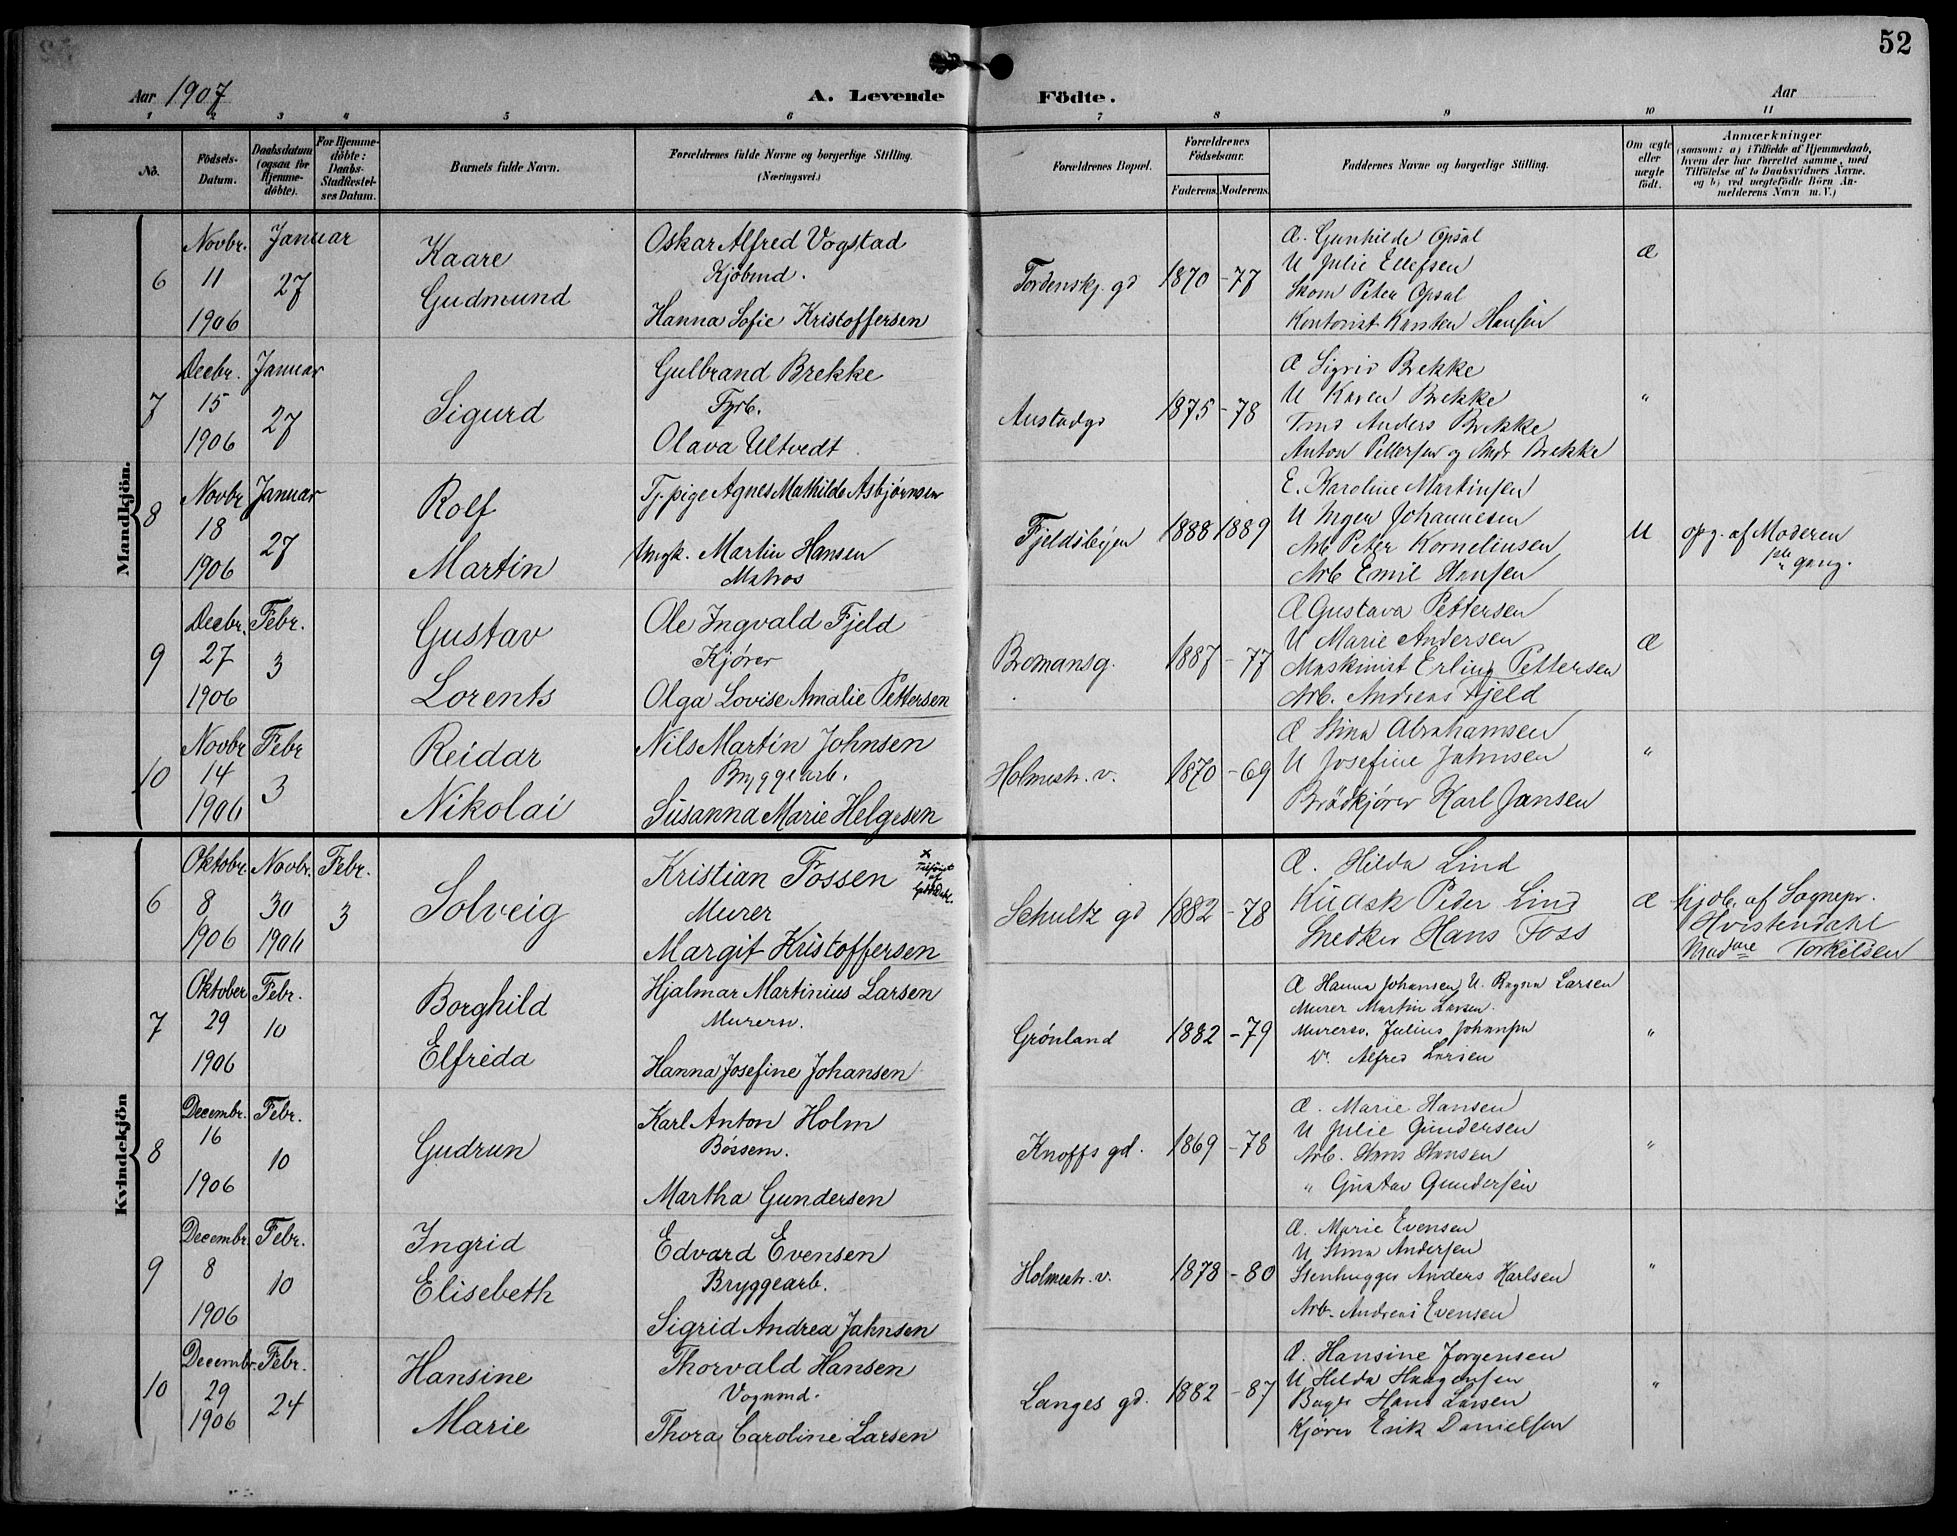 52
Aar 1907
A. Levende Födte.
Aar
1 2 3 4 5 6 7 8 9 10 11
No.
Födsels-Datum.
Daabsdatum (ogsaa for Hjemmedöbte).
For Hjemmedöbte: Daabs-Stadfæstelses Datum.
Barnets fulde Navn.
Forældrenes fulde Navne og borgerlige Stilling.
(Næringsvei.)
Forældrenes Bopæl.
Forældrenes Födselsaar.
Faderens. Moderens.
Faddernes Navne og borgerlige Stilling.
Om ægte eller uægte födt.
Anmærkninger
(saasom: a) i Tilfælde af Hjemmedaab,
hvem der har forrettet samme, med
Tilföielse af to Daabsvidners Navne,
og b) ved uægtefödte Börn An-
melderens Navn m. V.)
Mandkjön.
6
Novbr. 11 1906
Januar 27
Kaare
Gudmund
Oskar Alfred Vogstad
Kjöbmd.
Hanna Sofie Kristoffersen
Tordenskj. gd
1870 -77
Æ. Gunhilde Opsal
U Julie Ellefsen
Skom Peter Opsal
Kontorist Karsten Hansen
Æ
7
Decbr. 15 1906
Januar 27
Sigurd
Gulbrand Brekke
Fyrb.
Olava Ultvedt
Austadgd
1875 -78
Æ Sigrid Brekke
U Karen Brekke
Anders Brekke
Anton Pettersen og Andr Brekke
"
8
Novbr 18 1906
Januar 27
Rolf
Martin
Tj. pige Agnes Mathilde Asbjørnsen
Ungk. Martin Hansen
Matros
Fjeldsbyen
1888 1889
E. Karoline Martinsen
U Inger Johannesen
Arb Peter Kornelinsen
Arb Emil Hansen
U
opg. af Moderen
gang.
9
Decbr. 27 1906
Febr. 3
Gustav
Lorents
Ole Ingvald Fjeld
Kjører
Olga Lovise Amalie Pettersen
Bromansg.
1887 -77
Æ Gustava Pettersen
U Marie Andersen
Maskinist Erling Pettersen
Arb. Andreas Fjeld
Æ
10
Novbr 14 1906
Febr 3
Reidar
Nikolai
Nils Martin Johnsen
Bryggearb.
Susanna Marie Helgesen
Holmestr. v.
1870 -69
Æ Stina Abrahamsen
U Josefine Johnsen
Brödkjörer Karl Jansen
"
Kvindekjön
6
Oktobr. 8 1906
Novbr. 30 1906
Febr. 3
Solveig
Kristian Fossen
Murer
Margit Kristoffersen
Schultz gd
1882 -78
Æ. Hilda Lind
Kudsk Peder Lind
Snedker Hans Foss
Æ
hjdb. af Sognepr.
Hvistendahl
Madme Torkelsen
7
Oktober 29 1906
Febr. 10
Borghild
Elfrida
Hjalmar Martinius Larsen
Murersv.
Hanna Josefine Johansen
Grönland
1882 -79
Æ Hanna Johansen U. Ragna Larsen
Murer Martin Larsen.
Murersv. Julius Johansen
Alfred Larsen
"
8
Decembr. 16 1906
Febr. 10
Gudrun
Karl Anton Holm
Bössem.
Martha Gundersen
Knoffs gd.
1869 -78
Æ. Marie Hansen
U Julie Gundersen
Arb. Hans Hansen
" Gustav Gundersen
"
9
Decembr. 8 1906
Febr. 10
Ingrid
Elisebeth
Edvard Evensen
Bryggearb.
Sigrid Andrea Jahnsen
Holmestr. v.
1878 -80
Æ. Marie Evensen
U Stina Andersen
Stenhugger Anders Karlsen
Arb. Andreas Evensen
"
10
Decembr 29 1906
Febr. 24
Hansine
Marie
Thorvald Hansen
Vognmd.
Thora Caroline Larsen
Langes gd.
1882 -87
Æ. Hansine Jørgensen
U Hilda Haagensen
Bager Hans Larsen
Kjører Erik Danielsen
"